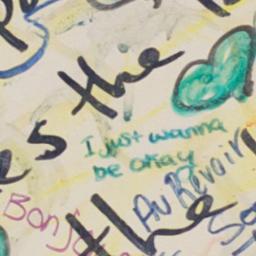 the
es the
I just wanna
be okay
Au Revoir
Bonjo
the
So